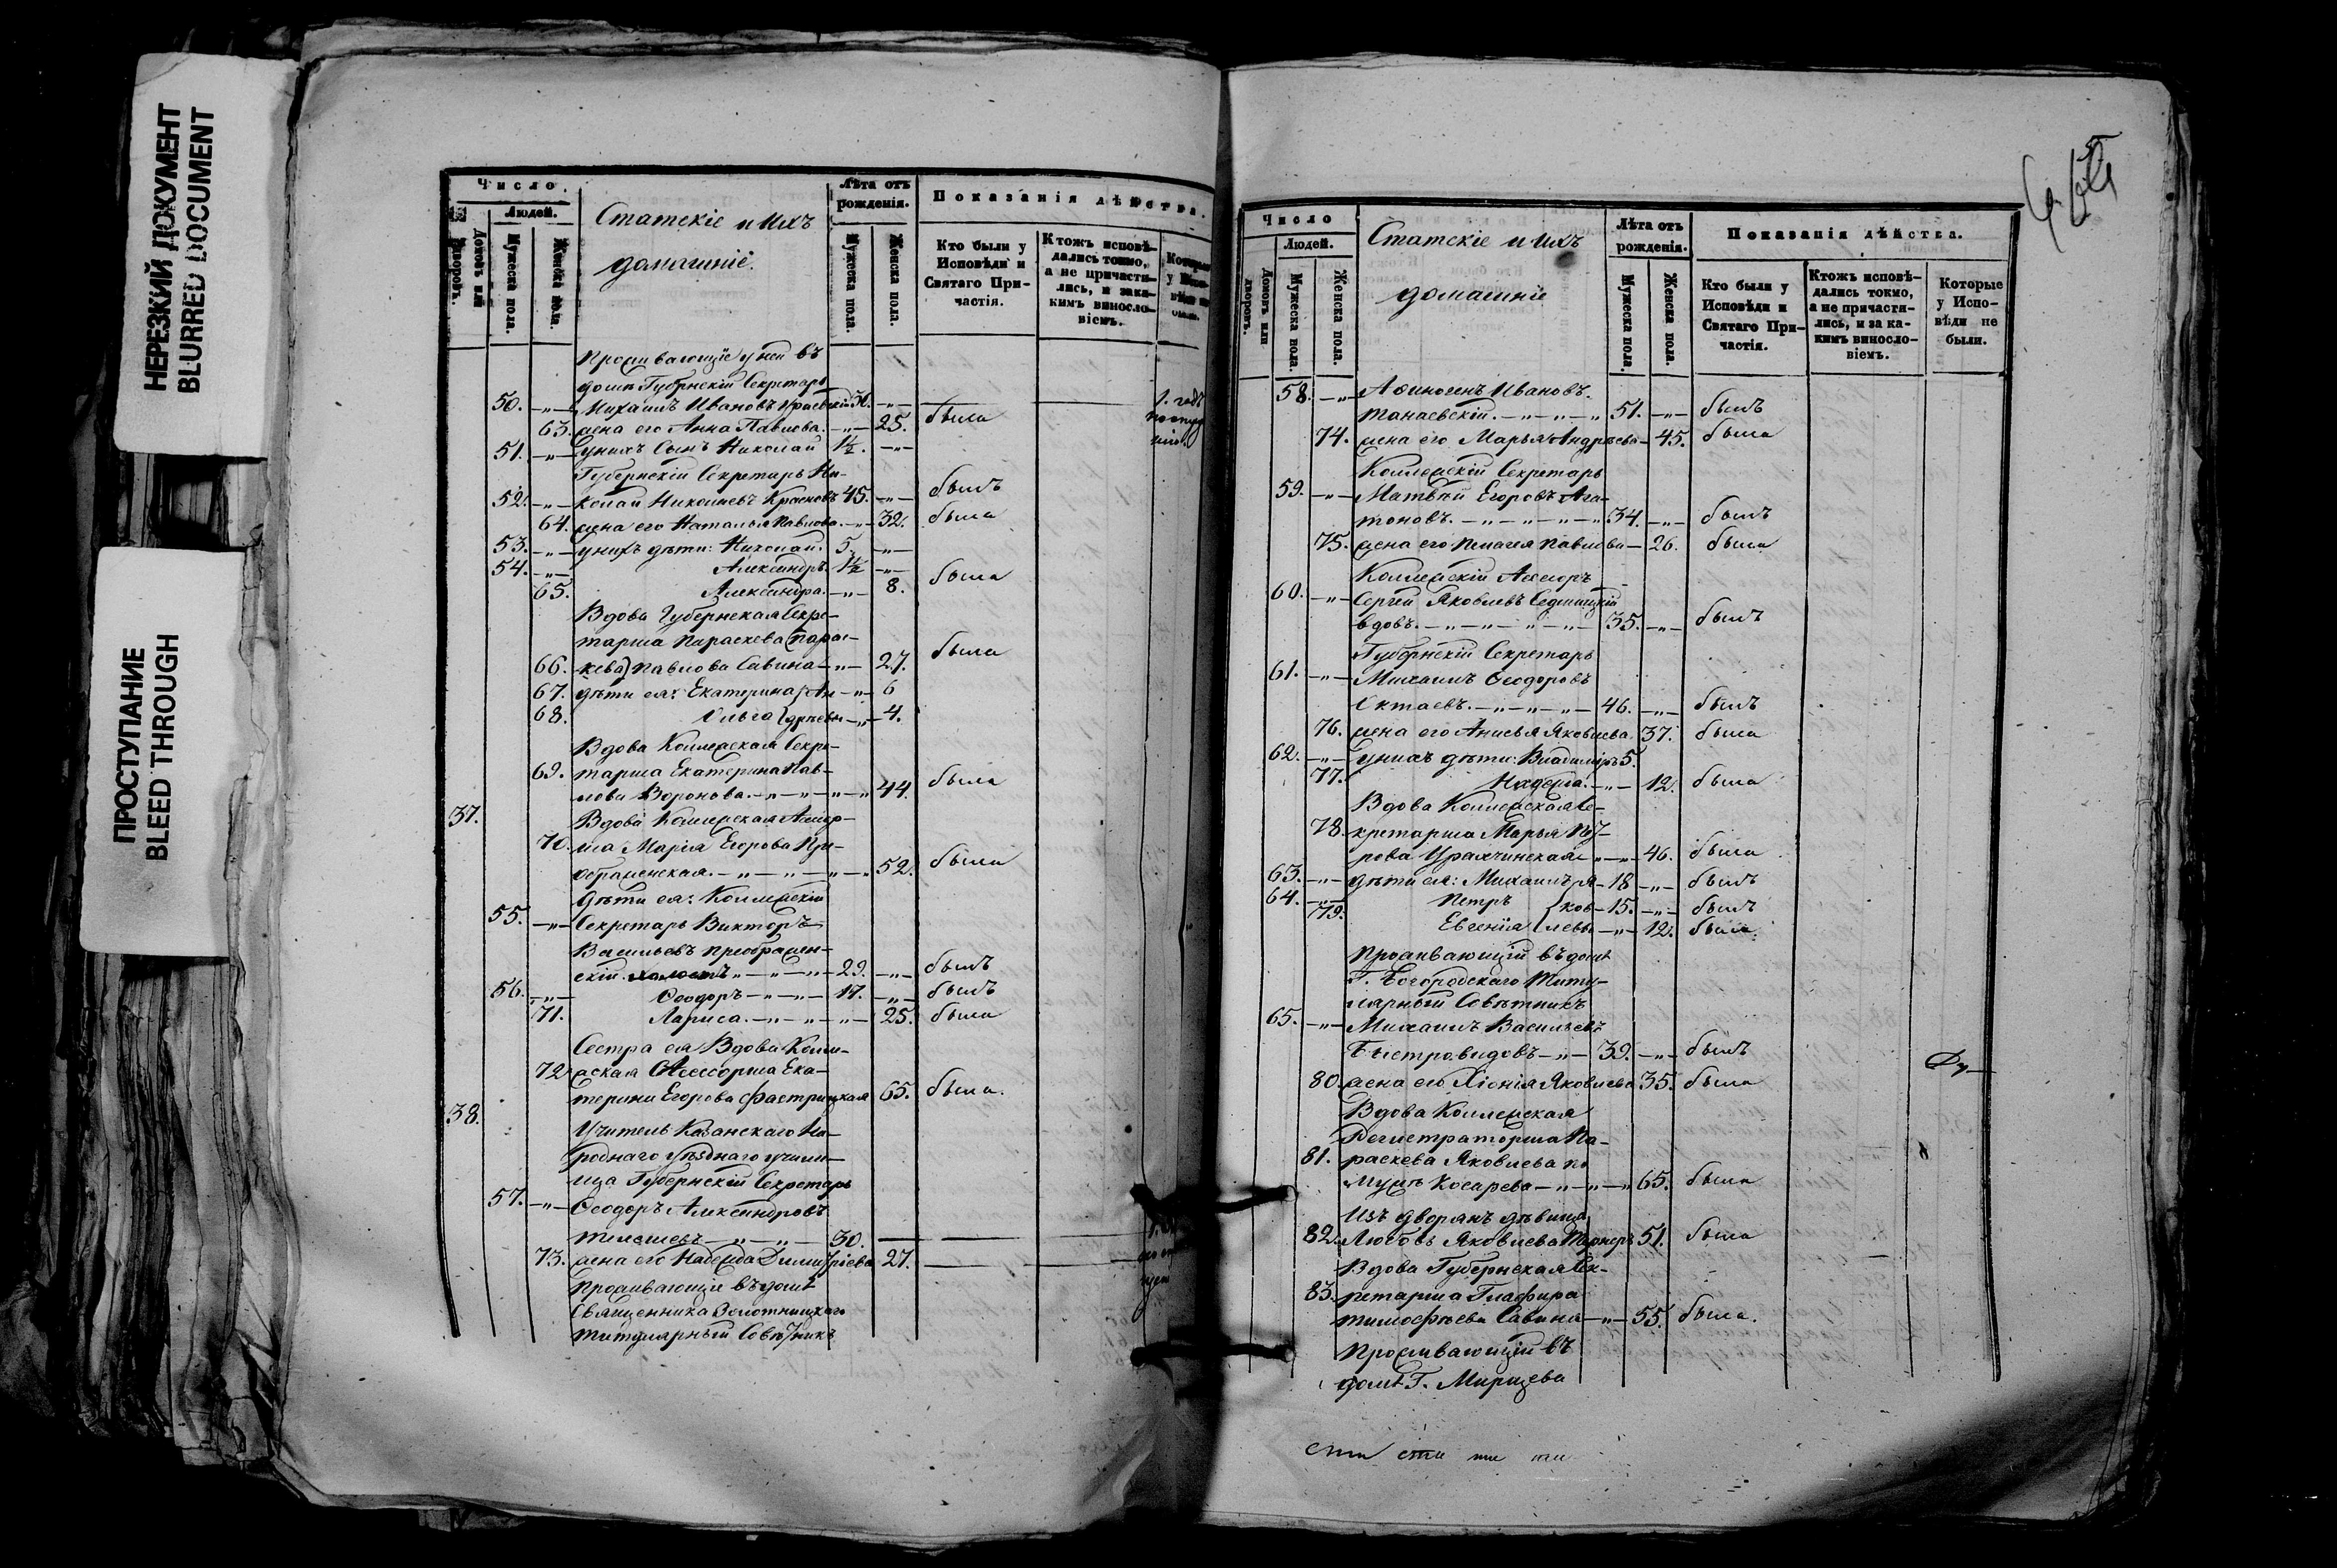 НЕРЕЗКИЙ ДОКУМЕНТ
BLURRED DOCUMENT
ПРОСТУПАНИЕ
BLEED THROUGH
Число
Людей.
Домовъ или дворовъ.
Мужеска пола.
Женска пола.
Статскіе и ихъ
домашніе.
Лѣта отъ рожденія.
Мужеска пола.
Женска пола.
Показанія дѣйства.
Кто были у Исповѣди и Святаго Причастія.
Ктожъ исповѣ-
дались токмо,
а не причасти-
лись, и за ка-
кимъ виносло-
віемъ.
Проживающіе у ней въ
домѣ Губернскій Секретарь
50. Михаилъ Ивановъ 30.
63. жена его Анна Павлова. 25. была
51. у нихъ сынъ Николай 1½.
Губернскій Секретарь Ни-
52. колай Николаевъ Красновъ 45. былъ
64. жена его Наталья Павлова. 32. была
53. у нихъ дѣти: Николай. 5.
54. Александръ. 1½
65. Александра. 8. была
Вдова Губернская Секре-
тарша Параскева (Парас-
66. кева) Павлова Савина 27. была
67. дѣти ея: Екатерина Ан- 6
68. Ольга дрѣевы 4.
Вдова Коллежская Секре-
69. тарша Екатерина Пав-
лова Воронова. 44. была
37. Вдова Коллежская Ассесор-
70. ша Марія Егорова Пре-
ображенская. 52. была
Дѣти ея: Коллежскій
55. Секретарь Викторъ
Васильевъ Преображен-
скій холостъ 29. былъ
56. Ѳеодоръ 17. былъ
71. Лариса. 25. была
Сестра ея Вдова Колле-
72. жская Ассессорша Ека-
терина Егорова 65. была.
38. Учитель Казанскаго На-
роднаго уѣзднаго учили-
ща Губернскій Секретарь
57. Ѳеодоръ Александровъ
30.
73. жена его Надежда Димитріева 27.
Проживающіе въ домѣ
Священника Золотницкаго
Титулярный Совѣтникъ
Число
Людей.
Домовъ или дворовъ.
Мужеска пола.
Женска пола.
Статскіе и ихъ
домашніе
Лѣта отъ рожденія.
Мужеска пола.
Женска пола.
Показанія дѣйства.
Кто были у Исповѣди и Святаго Причастія.
Ктожъ исповѣ-
дались токмо,
а не причасти-
лись, и за ка-
кимъ виносло-
віемъ.
Которые у Испо-
вѣди не были.
58. Аѳиногенъ Ивановъ.
Танаевскій. 51. былъ
74. жена его Марья Андреева 45. была
Коллежскій Секретарь
59. Матвѣй Егоровъ Ага-
тоновъ. 34. былъ
75. жена его Пелагея Павлова 26. была
Коллежскій Ассесоръ
60. Сергей Яковлевъ Седмицкій
вдовъ. 35. былъ
Губернскій Секретарь
61. Михаилъ Ѳеодоровъ
Октаевъ. 46. былъ
76. жена его Анисья Яковлева 37. была
62. у нихъ дѣти: Владиміръ 5.
77. Надежда. 12. была
Вдова Коллежская Се-
78. кретарша Марья Пет-
рова 46. была
63. дѣти ея: Михаилъ Я- 18 былъ
64. Петръ ков- 15. былъ
79. Евгенія левы 12. была.
Проживающій въ домѣ
Г. Богородскаго Титу-
лярный Совѣтникъ
65. Михаилъ Васильевъ
Быстровидовъ 39. былъ
80. жена его Хіонія Яковлева 35. была
Вдова Коллежская
Регистраторша Па-
81. раскева Яковлева по
мужѣ Косарева 65. была
Изъ дворянъ дѣвица
82. Любовь Яковлева 51. была
Вдова Губернская Сек-
83. ретарша Глафира
Тимофѣева Савина 55. была.
Проживающій въ
домѣ Г.